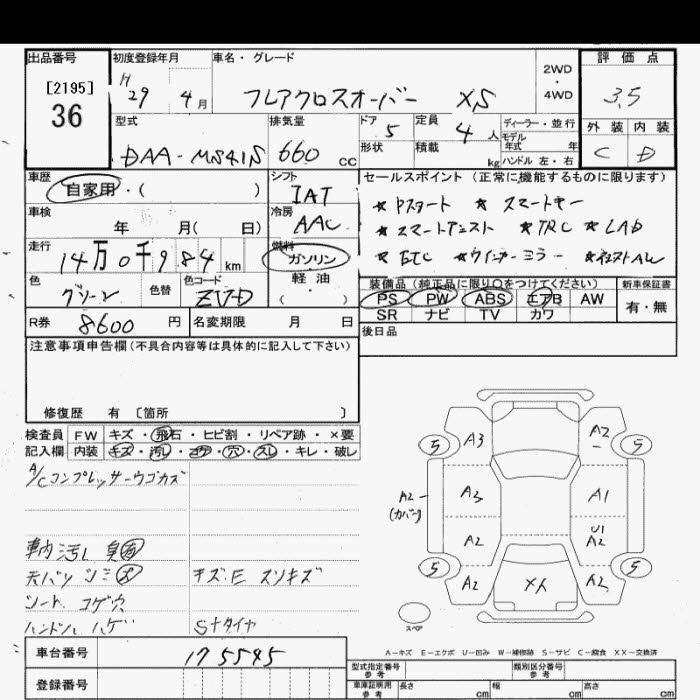 出品番号
[2195]
36
初度登録年月
H
29 4月
車名・グレード
フレアクロスオーバー XS
2WD
・
4WD
評価点
3.5
外装 内装
C D
型式
DAA-MS41S
排気量
660 cc
ドア
5
形状
定員
4人
積載
kg
ディーラー・並行
モデル
年式 年
ハンドル 左・右
車歴
自家用・( )
シフト
IAT
車検
年 月( 日)
冷房
AAC
走行
14万0千984km
燃料
ガソリン
軽油
( )
色
グリーン
色替
色コード
ZVD
R券
8600円
名変期限 月 日
セールスポイント(正常に機能するものに限ります)
★Pスタート ★スマートキー
★スマートアシスト ★TRC ★LAD
★ETC ★ウインカーミラー ★ネスストAW
装備品(純正品に限り○をつけてください)
PS PW ABS エアB AW
SR ナビ TV カワ
新車保証書
有・無
後日品
注意事項申告欄(不具合内容等は具体的に記入して下さい)
修復歴 有 〔箇所 〕
検査員 FW キズ・飛石・ヒビ割・リペア跡・×要
記入欄 内装 キズ・汚レ・コゲ・穴・スレ・キレ・破レ
A/Cコンプレッサーウゴカズ
車内汚レ 臭有
天バリ シミ大 キズ・E スリキズ
シート コゲ穴
ハンドル ハゲ Sナタイヤ
5 A3 A2 5
A2 (カバー) A3 A1
A2 U1 A2
5 A2 XX A2 5
スペア
A-キズ E-エクボ U-凹み W-補修跡 S-サビ C-腐食 XX-交換済
車台番号 175545
登録番号
型式指定番号 参考
類別区分番号 参考
車庫証明用 参考 長さ cm 幅 cm 高さ cm